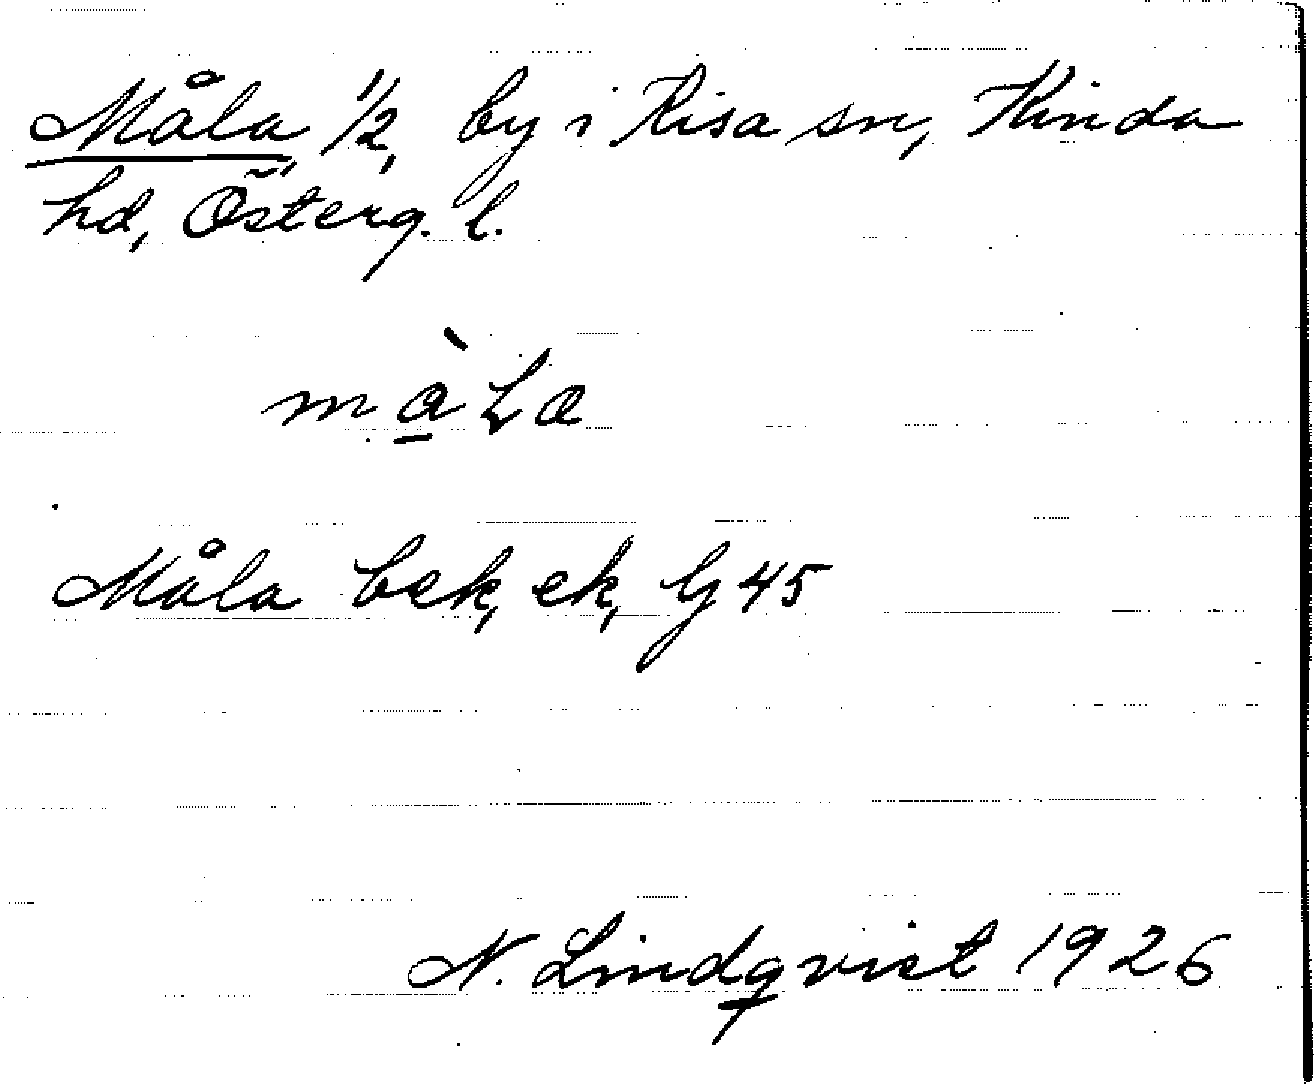 Måla 1/2, by i Kisa sn, Kinda
hd, Österg. l.
màLa
Måla bek, ek, G 45
N. Lindqvist 1926